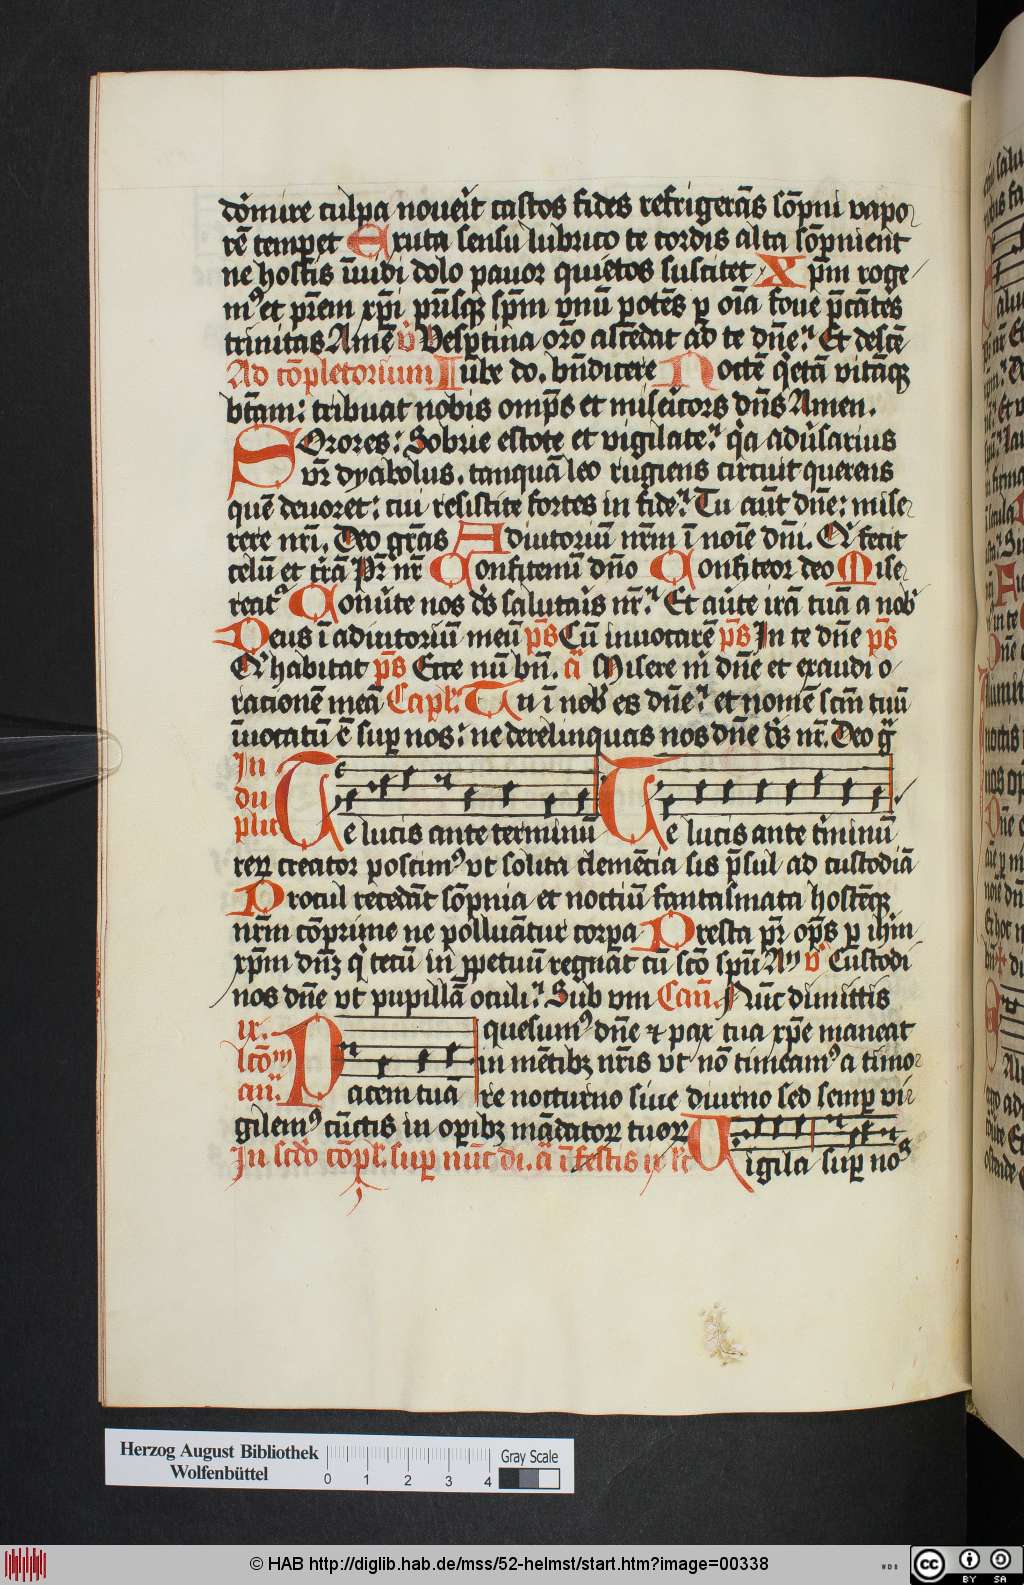 dormire culpa noverit castos fides refrigerās sōpni vapo
rē temperet Exuta sensu lubrico te cordis alta sōpnient
ne hostis īvidi dolo pavor quietos suscitet Xpm roge
mꝰ et prēm xpi prīsqꝫ spm vnū potēs p oīa fove pcātes
trinitas Amē v̊ Vesptina orō ascēdat ad te dñe Et descē
Ad cōpletorium Iube do. bñdicere Noctē qetā vitāqꝫ
btam: tribuat nobis omps et misericors dñs Amen.
SOrores: Sobrie estote et vigilate qa adversarius
vr̄ dyabolus. tanquā leo rugiens circuit querens
quē devoret: cui resistite fortes in fide Tu aūt dñe: mise
rere nrī. Deo grās Adiutoriū nrm ī noīe dñi. Qi fecit
celū et trā Pr nr Confitemī dño Confiteor deo Mise
reat Converte nos ds salutaris nr Et averte irā tuā a nob
Deus ī adiutoriū meū ps Cū invocarē ps In te dñe ps
Qi habitat ps Ecce nū bñ. añ Miserere mī dñe et exaudi o
rationē meā Capl. Tu ī nob es dñe et nomē scm tuū
īvocatū ē sup nos: ne derelinquas nos dñe ds nr. Deo g
In
du
plic Te lucis ante terminū Te lucis ante tminū
rerꝝ creator poscimꝰ vt solita clemētia sis psul ad custodiā
Procul recedāt sōpnia et noctiū fantasmata hostēqꝫ
nrm cōprime ne polluātur corpa Presta pr ops p ihm
xpm dñꝫ qi tecū in ppetuū regnat cū scō spū Am v̊ Custodi
nos dñe vt pupillā oculi Sub vm Can. Nūc dimittis
ix.
lcōm
añ. Pacem tuā quesumꝰ dñe ⁊ pax tua xpe maneat
in mētibꝫ nris vt nō timeamꝰ a timo
re nocturno sive diurno sed semp vi
gilemꝰ cūctis in opibꝫ mādatoꝝ tuoꝝ
In scdo cōpl. sup nūc di. añ ī festis ix lc Vigila sup nos
Herzog August Bibliothek
Wolfenbüttel
0 1 2 3 4
Gray Scale
© HAB http://diglib.hab.de/mss/52-helmst/start.htm?image=00338
cc BY SA